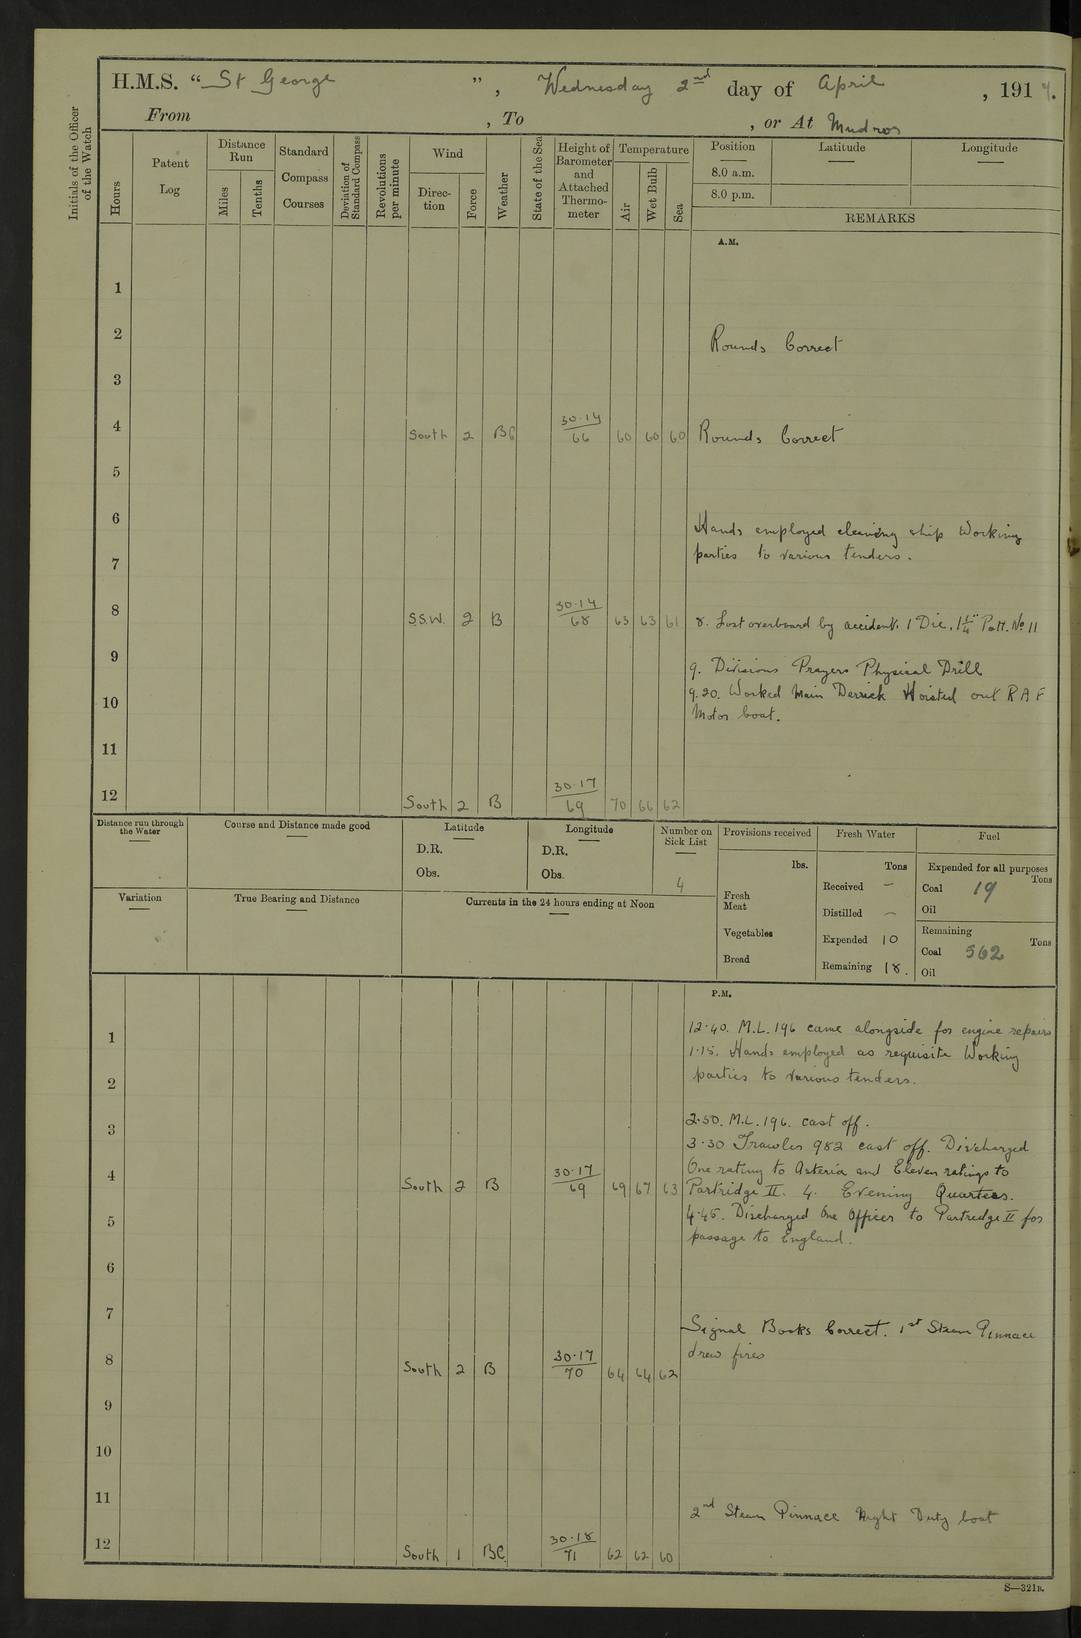 H.M.S. "St George", Wednesday 2nd day of April, 191
From , To , or At Mudros
Initials of the Officer of the Watch
Hours
Patent Log
Distance Run
Miles
Tenths
Standard Compass Courses
Deviation of Standard Compass
Revolutions per minute
Wind
Direction
Force
Weather
State of the Sea
Height of Barometer and Attached Thermometer
Temperature
Air
Wet Bulb
Sea
Position Latitude Longitude
8.0 a.m.
8.0 p.m.
REMARKS
A.M.
1
2 Rounds Correct
3
4 South 2 BC 30.14/66 60 60 60 Rounds Correct
5
6 Hands employed cleaning ship Working
7 parties to various tenders.
8 S.S.W. 2 B 30.14/68 63 63 61 8. Lost overboard by accident. 1 Die. 1¼" Patt. No 11
9 9. Divisions Prayers Physical Drill
9.20. Worked Main Derrick Hoisted out R A F
10 Motor boat.
11
12 South 2 B 30.17/69 70 66 62
Distance run through the Water
Course and Distance made good
Latitude
D.R.
Obs.
Longitude
D.R.
Obs.
Number on Sick List
4
Provisions received
lbs.
Fresh Meat
Vegetables
Bread
Fresh Water
Tons
Received –
Distilled –
Expended 10
Remaining 18.
Fuel
Expended for all purposes
Tons
Coal 19
Oil
Remaining
Tons
Coal 562
Oil
Variation
True Bearing and Distance
Currents in the 24 hours ending at Noon
P.M.
12.40. M.L. 196 came alongside for engine repairs
1 1.15. Hands employed as requisite Working
2 parties to various tenders.
3 2.50. M.L. 196. cast off.
3.30 Trawler 982 cast off. Discharged
One rating to Asteria and Eleven ratings to
4 South 2 B 30.17/69 69 67 63 Partridge II. 4. Evening Quarters.
5 4.45. Discharged One Officer to Partridge II for
passage to England.
6
7 Signal Books Correct. 1st Steam Pinnace
8 South 2 B 30.17/70 64 64 62 drew fires
9
10
11 2nd Steam Pinnace Night Duty boat
12 South 1 BC. 30.18/71 62 62 60
S—321B.